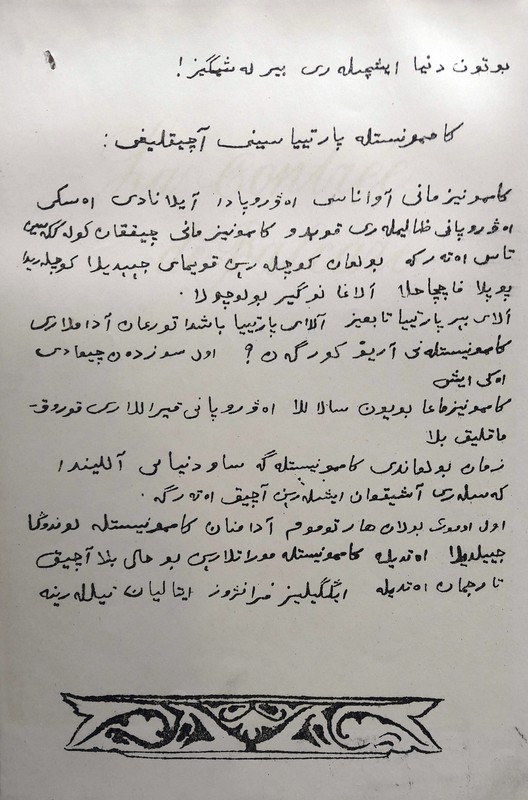 بوتون دنیا ایشچیله ری بیر له شیگیز!
كاممونیستله پارتییا سینی آچیقلیغی:
كاممونیزمانی آواناسی اه ۋروپادا آیلانادی اه سكی
اه ۋروپانی ظالیمله ری قوبدو كاممونیزمانی چیققان كوله ككه سین
تاس اه ته رگه بولعان كوچله رین قویماي جییدیلا كوچله ریدا
پوپلا فاچچاحلا آلاغا نوگیر بولوچولا.
آلای بیر پارتییا تابعیز آلای پارتییا باشدا تورعان آداملاری
كاممونیستله نی آریۋ كورگه ن؟ اول سوزده ن چیعادی
اه كی ایش
كاممونیزماعا بویون سالاللا اه ۋروپانی قیراللاری قوروۋ
ماقلیق بلا
زمان بولعاندی كاممونیستله گه ساو دنیانی آللیندا
كه سله ری آشیقوان ایشله رین آچیق اه ته رگه.
اول اومورئ بولان هار توموم آدامنان كاممونیستله لوندوڭا
جییلدیلا اه تدیله كاممونیستله موراتلارین بو حالی بلا آچیق
تارجمان اه تدیله اینگیلیز فرانژوز ایتالیان تیلله رینه